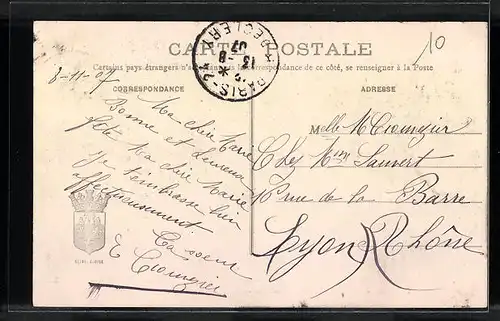 CARTE POSTALE
Certains pays étrangers n'acceptant pas de correspondance de ce côté, se renseigner à la Poste
10
8-11-07
PARIS-24
13
07
CORRESPONDANCE
ADRESSE
Ma chère Marie
Bonne et heureuse
fête Ma chère Marie
je t'embrasse bien
affectueusement
Ta soeur
E
Melle M
Chez Mme Laurent
16 rue de la Barre
Lyon Rhône